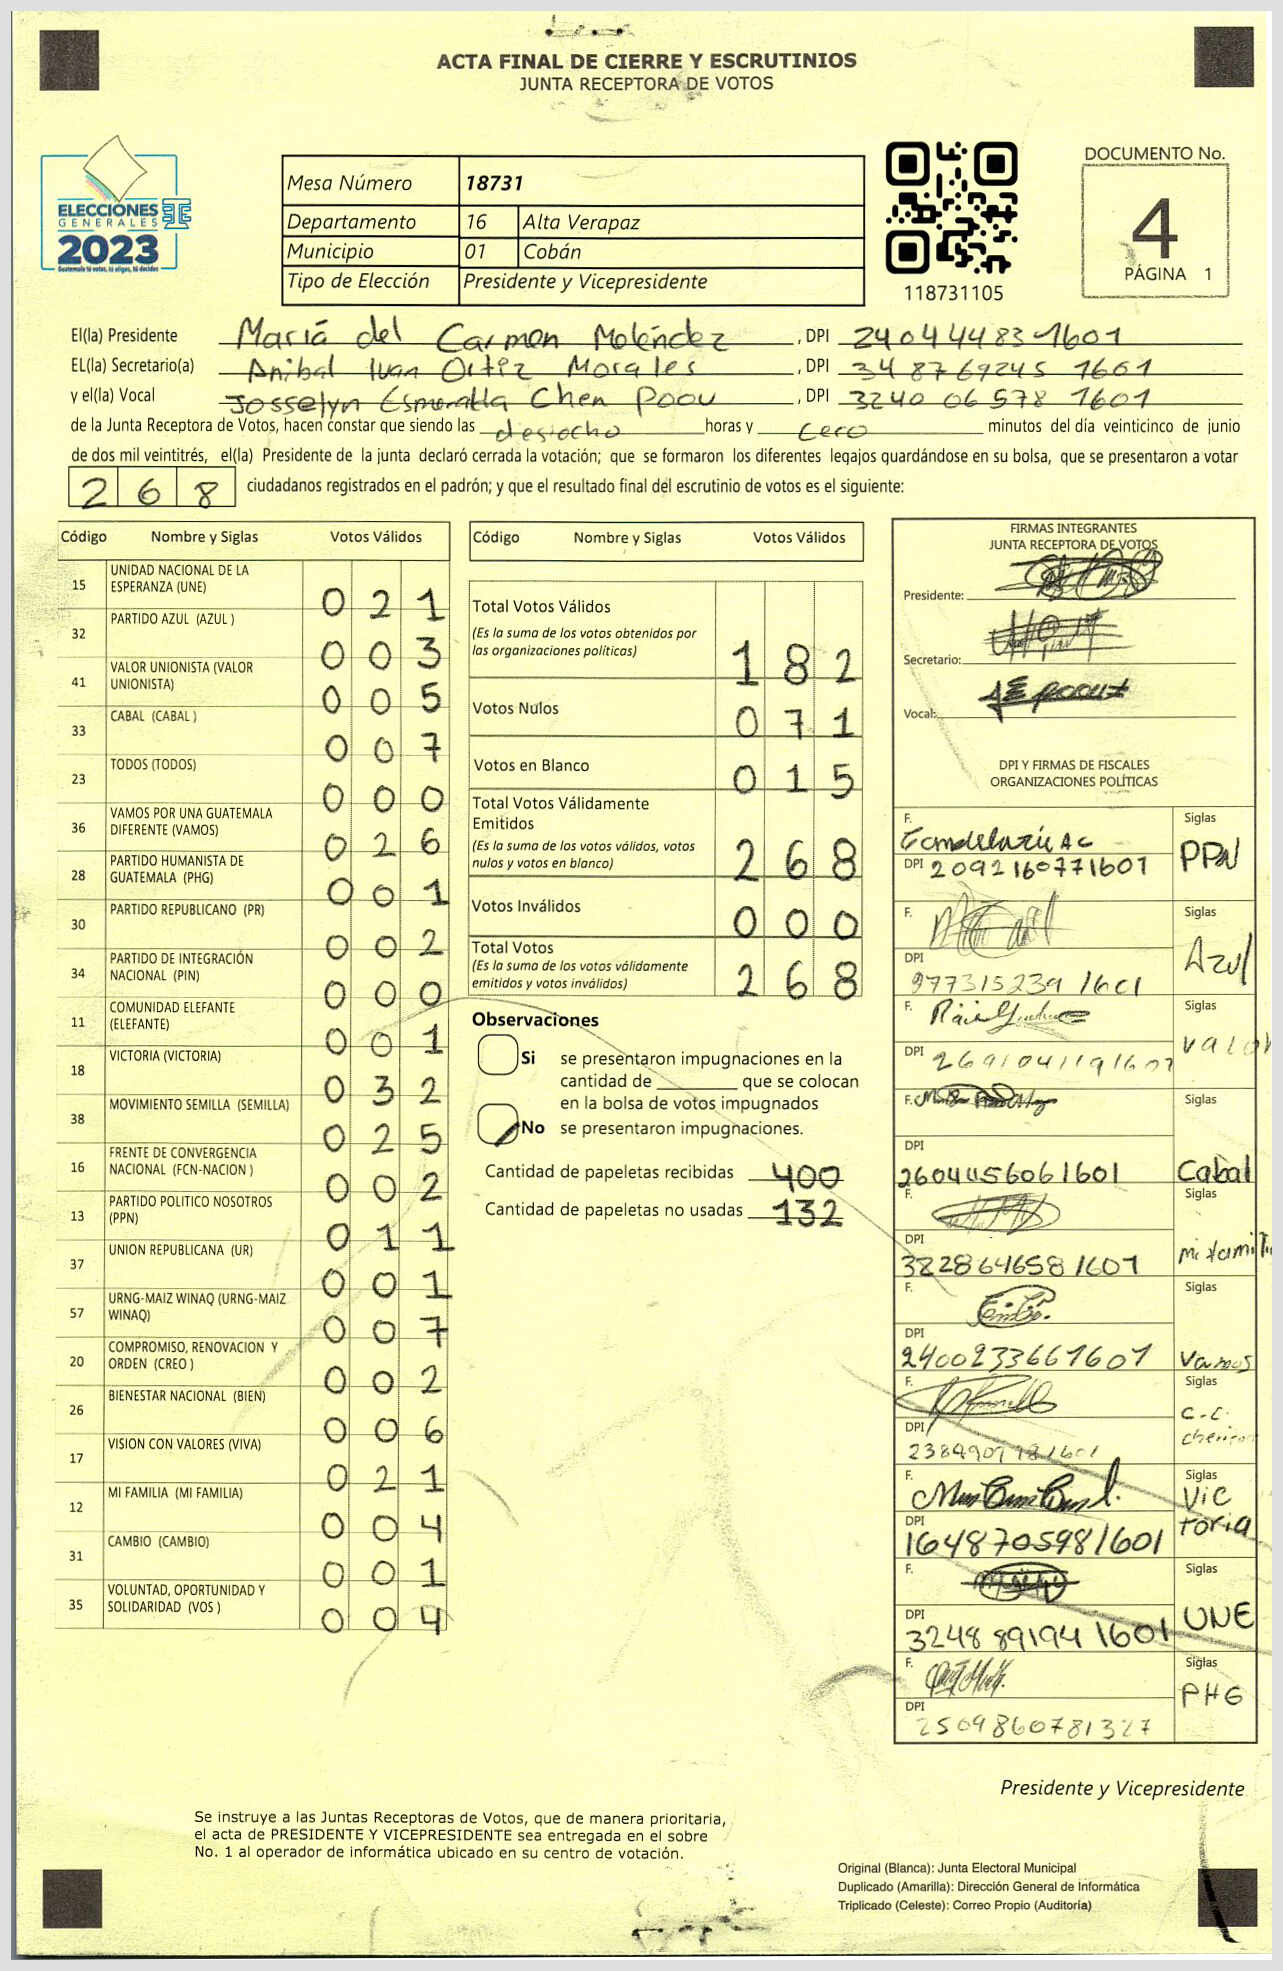 ACTA FINAL DE CIERRE Y ESCRUTINIOS
JUNTA RECEPTORA DE VOTOS
ELECCIONES
GENERALES
2023
Guatemala tú votas, tú eliges, tú decides
Mesa Número 18731
Departamento 16 Alta Verapaz
Municipio 01 Cobán
Tipo de Elección Presidente y Vicepresidente
118731105
DOCUMENTO No.
4
PÁGINA 1
El(la) Presidente Mariá del Carmen Meléndez, DPI 24044483 1601
EL(la) Secretario(a) Anibal Ivan Ortiz Morales, DPI 348769245 1601
y el(la) Vocal Josselyn Esmeralda Chen Poou, DPI 3240 06578 1601
de la Junta Receptora de Votos, hacen constar que siendo las desiocho horas y cero minutos del día veinticinco de junio
de dos mil veintitrés, el(la) Presidente de la junta declaró cerrada la votación; que se formaron los diferentes legajos guardándose en su bolsa, que se presentaron a votar
268 ciudadanos registrados en el padrón; y que el resultado final del escrutinio de votos es el siguiente:
Código Nombre y Siglas Votos Válidos
15 UNIDAD NACIONAL DE LA ESPERANZA (UNE) 021
32 PARTIDO AZUL (AZUL ) 003
41 VALOR UNIONISTA (VALOR UNIONISTA) 005
33 CABAL (CABAL ) 007
23 TODOS (TODOS) 000
36 VAMOS POR UNA GUATEMALA DIFERENTE (VAMOS) 026
28 PARTIDO HUMANISTA DE GUATEMALA (PHG) 001
30 PARTIDO REPUBLICANO (PR) 002
34 PARTIDO DE INTEGRACIÓN NACIONAL (PIN) 000
11 COMUNIDAD ELEFANTE (ELEFANTE) 001
18 VICTORIA (VICTORIA) 032
38 MOVIMIENTO SEMILLA (SEMILLA) 025
16 FRENTE DE CONVERGENCIA NACIONAL (FCN-NACION ) 002
13 PARTIDO POLITICO NOSOTROS (PPN) 011
37 UNION REPUBLICANA (UR) 001
57 URNG-MAIZ WINAQ (URNG-MAIZ WINAQ) 007
20 COMPROMISO, RENOVACION Y ORDEN (CREO ) 002
26 BIENESTAR NACIONAL (BIEN) 006
17 VISION CON VALORES (VIVA) 021
12 MI FAMILIA (MI FAMILIA) 004
31 CAMBIO (CAMBIO) 001
35 VOLUNTAD, OPORTUNIDAD Y SOLIDARIDAD (VOS ) 004
Código Nombre y Siglas Votos Válidos
Total Votos Válidos
(Es la suma de los votos obtenidos por
las organizaciones políticas) 182
Votos Nulos 071
Votos en Blanco 015
Total Votos Válidamente
Emitidos
(Es la suma de los votos válidos, votos
nulos y votos en blanco) 268
Votos Inválidos 000
Total Votos
(Es la suma de los votos válidamente
emitidos y votos inválidos) 268
Observaciones
Si se presentaron impugnaciones en la
cantidad de ________ que se colocan
en la bolsa de votos impugnados
No se presentaron impugnaciones.
Cantidad de papeletas recibidas 400
Cantidad de papeletas no usadas 132
FIRMAS INTEGRANTES
JUNTA RECEPTORA DE VOTOS
Presidente:
Secretario:
Vocal:
DPI Y FIRMAS DE FISCALES
ORGANIZACIONES POLÍTICAS
F. Siglas PPN
DPI 2092160771601
F. Siglas Azul
DPI 977315239 1601
F. Siglas Valor
DPI 2691041191607
F. Siglas Cabal
DPI 2604456061601
F. Siglas
DPI 3228646581601
F. Siglas Vamos
DPI 2400233661601
F. Siglas C.C.
DPI
F. Siglas Victoria
DPI 1648705981601
F. Siglas UNE
DPI 3248 89194 1601
F. Siglas PHG
DPI 2509860781327
Presidente y Vicepresidente
Se instruye a las Juntas Receptoras de Votos, que de manera prioritaria,
el acta de PRESIDENTE Y VICEPRESIDENTE sea entregada en el sobre
No. 1 al operador de informática ubicado en su centro de votación.
Original (Blanca): Junta Electoral Municipal
Duplicado (Amarilla): Dirección General de Informática
Triplicado (Celeste): Correo Propio (Auditoría)